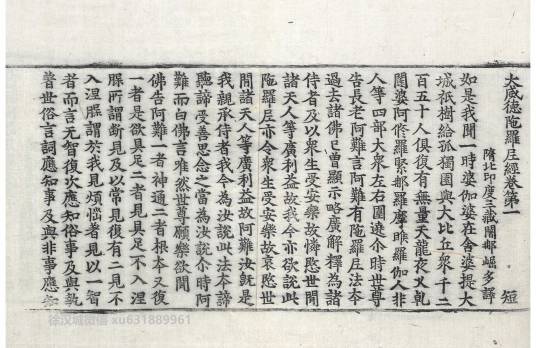 大威德陀羅尼經卷第一
短
隋北印度三藏闍那崛多譯
如是我聞一時婆伽婆在舍婆提大
城祇樹給孤獨園與大比丘衆千二
百五十人俱復有無量天龍夜叉乹
闥婆阿修羅緊那羅摩睺羅伽人非
人等四部大衆左右圍遶尒時世尊
告長老阿難言阿難有陀羅尼法本
過去諸佛已曾顯示略廣解釋爲諸
侍者及以衆生受安樂故憐愍世間
諸天人等廣利益故我今亦欲說此
陀羅尼亦令衆生受安樂故哀愍世
間諸天人等廣利益故阿難汝旣是
我親承侍者我今爲汝說此法本諦
聽諦受善思念之當爲汝說尒時阿
難而白佛言唯然世尊願樂欲聞
佛告阿難一者神通二者根本又復
一者是欲具足二者見具足不入涅
脤所謂斷見及以常見復有二見不
入涅脤謂於我見煩惱者見以一智
者而言无智復次應知俗事及與執
着世俗言詞應知事及與非事應知
徐汉城微信 xu631889961